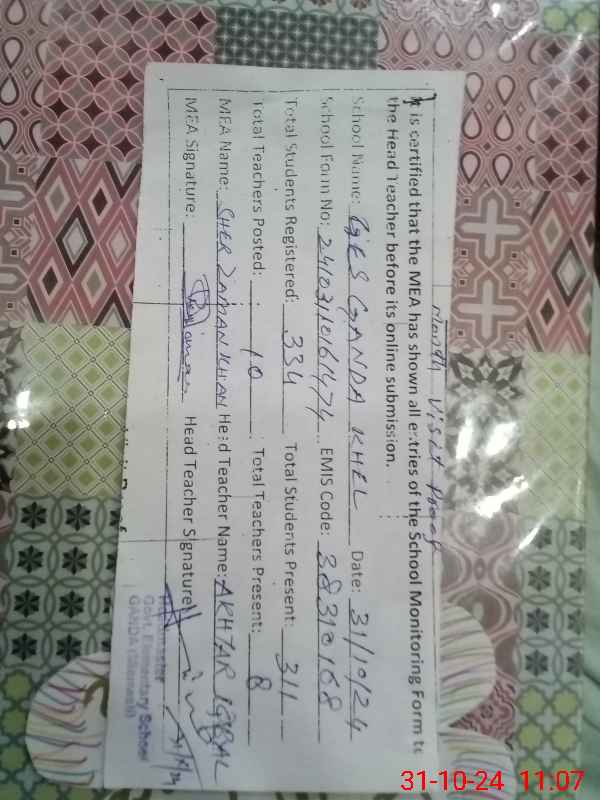 Month Visit Proof
It is certified that the MEA has shown all entries of the School Monitoring Form to
the Head Teacher before its online submission.
School Name: GES GANDA KHEL Date: 31/10/24
School Form No: 24103110161474 EMIS Code: 38310168
Total Students Registered: 334 Total Students Present: 311
Total Teachers Posted: 10 Total Teachers Present: 8
MEA Name: SHER ZAMAN KHAN Head Teacher Name: AKHTAR IQBAL
MEA Signature: Head Teacher Signature:
Headmaster
Govt. Elementary School
GANDA
31-10-24 11:07